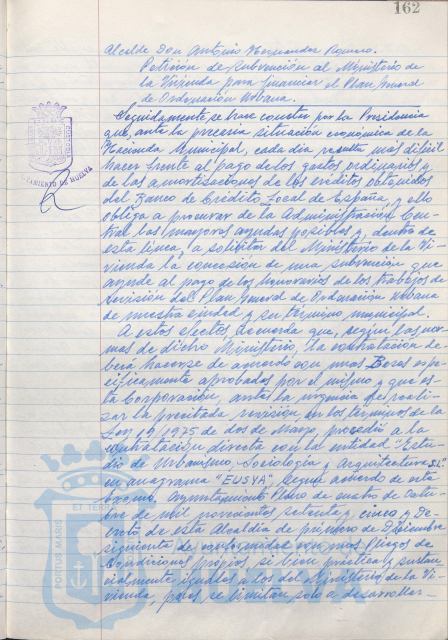 162
Alcalde Don Antonio Hernandez Romero.
Petición de subvención al Ministerio de
la Vivienda para financiar el Plan General
de Ordenación Urbana.
Seguidamente se hace constar por la Presidencia
que, ante la precaria situación económica de la
Hacienda Municipal, cada día resulta más difícil
hacer frente al pago de los gastos ordinarios y
de las amortizaciones de los créditos obtenidos
del Banco de Crédito Local de España, y ello
obliga a procurar de la Administración Cen-
tral las mayores ayudas posibles y, dentro de
esta línea, a solicitar del Ministerio de la Vi-
vienda la concesión de una subvención que
ayude al pago de los honorarios de los trabajos de
Revisión del Plan General de Ordenación Urbana
de nuestra ciudad y su término municipal.
A estos efectos recuerda que, según las nor-
mas de dicho Ministerio, la contratación de-
berá hacerse de acuerdo con unas Bases espe-
cíficamente aprobadas por el mismo y que es-
ta Corporación, ante la urgencia de reali-
zar la precitada revisión en los términos de la
Ley 19/1975 de dos de Mayo, procedió a la
contratación directa con la entidad "Estu-
dio de Urbanismo, Sociología y Arquitectura S.L."
en anagrama "EUSYA", según acuerdo de este
Ayuntamiento Pleno de cuatro de Octu-
bre de mil novecientos setenta y cinco y De-
creto de esta Alcaldía de primero de Diciembre
siguiente de conformidad con unos Pliegos de
Condiciones propios, si bien práctica y sustan-
cialmente iguales a los del Ministerio de la Vi-
vienda, pues se limitan solo a desarrollar
AYUNTAMIENTO DE HUELVA
PORTUS MARIS
ET TERRAE